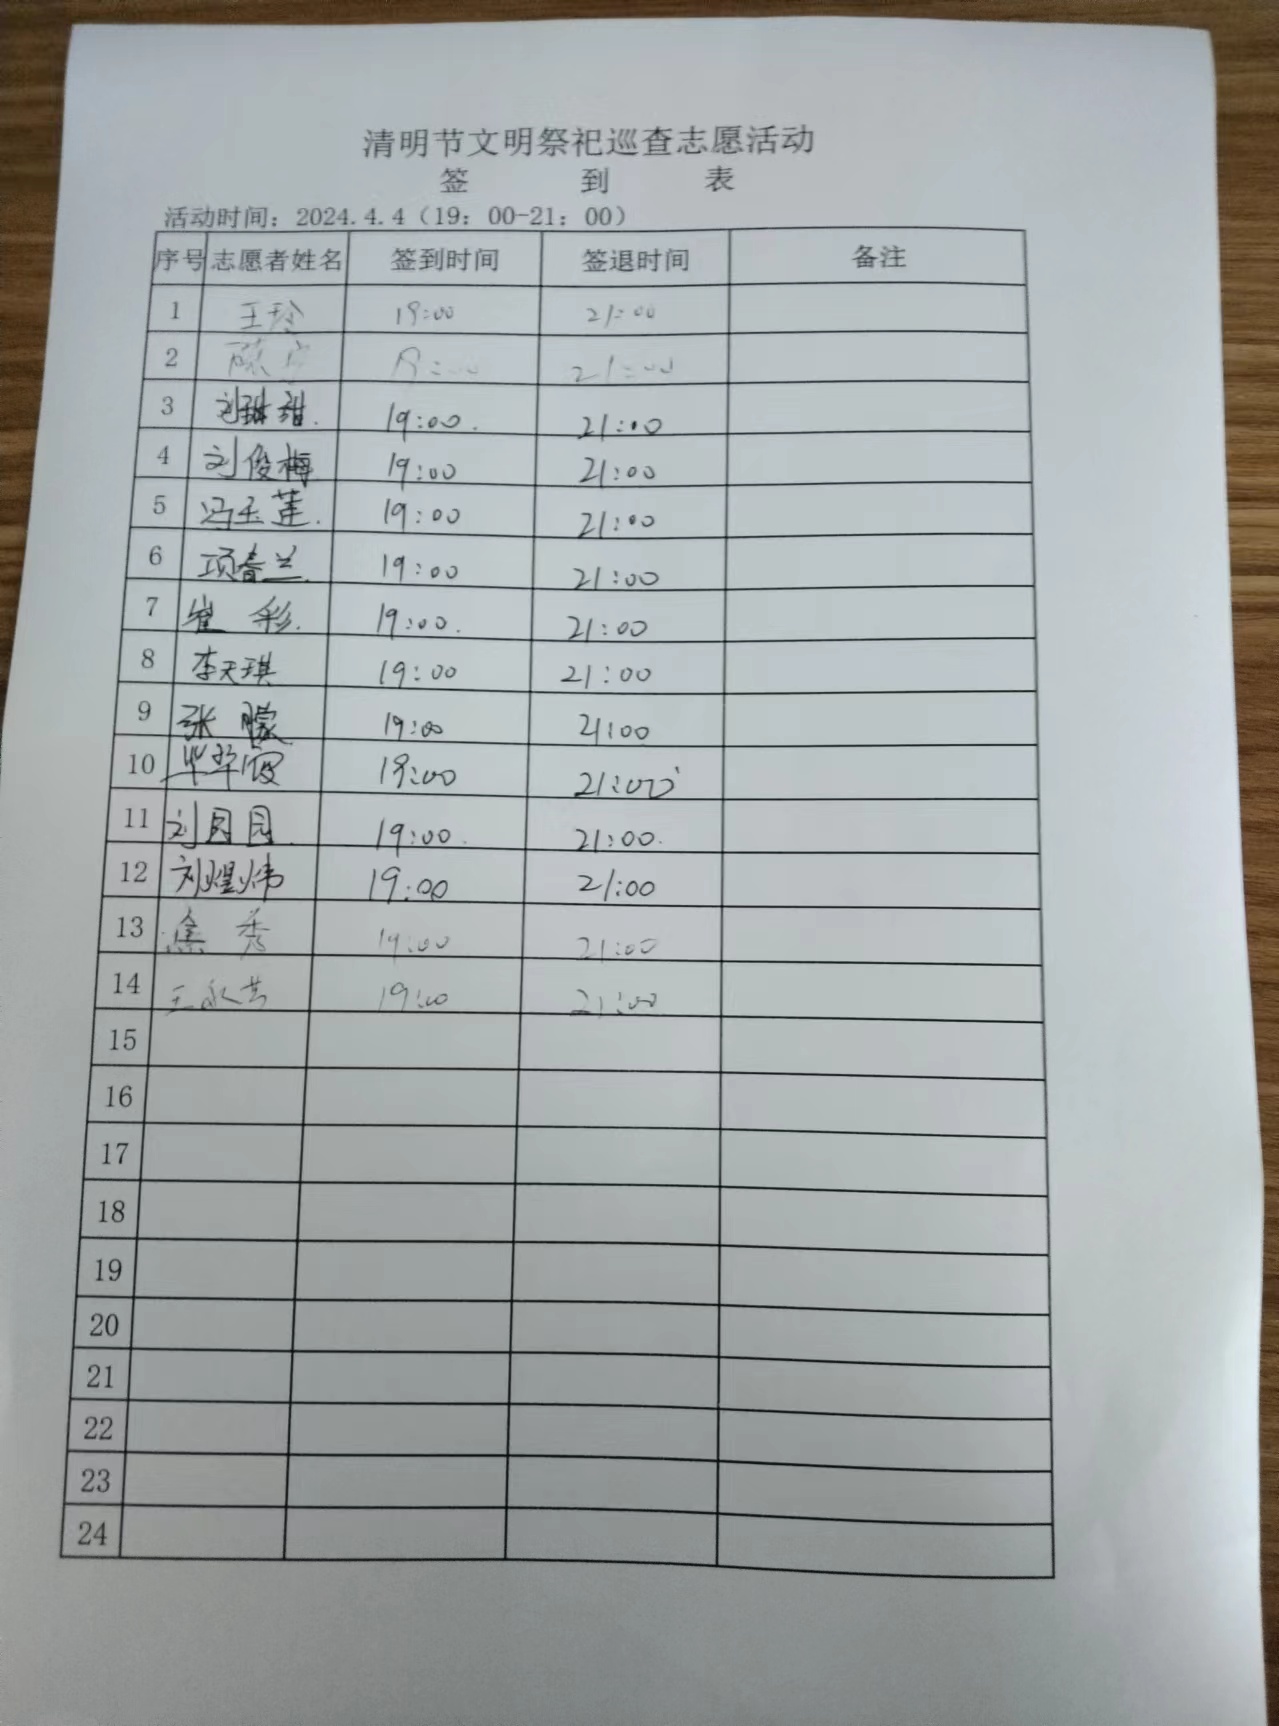 清明节文明祭祀巡查志愿活动
签 到 表
活动时间：2024.4.4（19：00-21：00）
序号 志愿者姓名 签到时间 签退时间 备注
1 王玲 19:00 21:00
2 21:00
3 刘琳甜. 19:00. 21:00
4 刘俊梅 19:00 21:00
5 冯玉莲. 19:00 21:00
6 项春兰. 19:00 21:00
7 崔彩. 19:00. 21:00
8 李天琪 19:00 21:00
9 张朦 19:00 21:00
10 19:00 21:00
11 刘园园. 19:00. 21:00.
12 刘煜炜 19:00 21:00
13 焦秀 19:00 21:00
14 王永芸 19:00 21:00
15
16
17
18
19
20
21
22
23
24